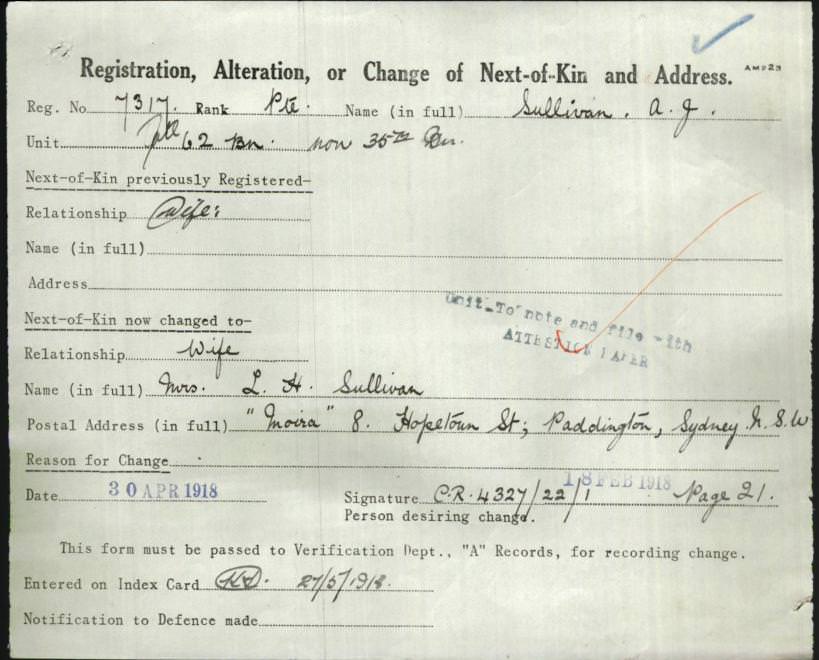 Registration, Alteration, or Change of Next-of-Kin and Address.
Reg. No 7317. Rank Pte. Name (in full) Sullivan. A. J.
Unit 62 Bn. now 35th Bn.
Next-of-Kin previously Registered-
Relationship Wife:
Name (in full)
Address
Unit-To note and file with
ATTESTION PAPER
Next-of-Kin now changed to-
Relationship Wife
Name (in full) Mrs. L. H. Sullivan
Postal Address (in full) "Moira" 8. Hopetoun St; Paddington, Sydney N.S.W
Reason for Change
Date 30 APR 1918
18 FEB 1918
Signature C.R. 4327/22/1 Page 21.
Person desiring change.
This form must be passed to Verification Dept., "A" Records, for recording change.
Entered on Index Card 27/5/1918.
Notification to Defence made